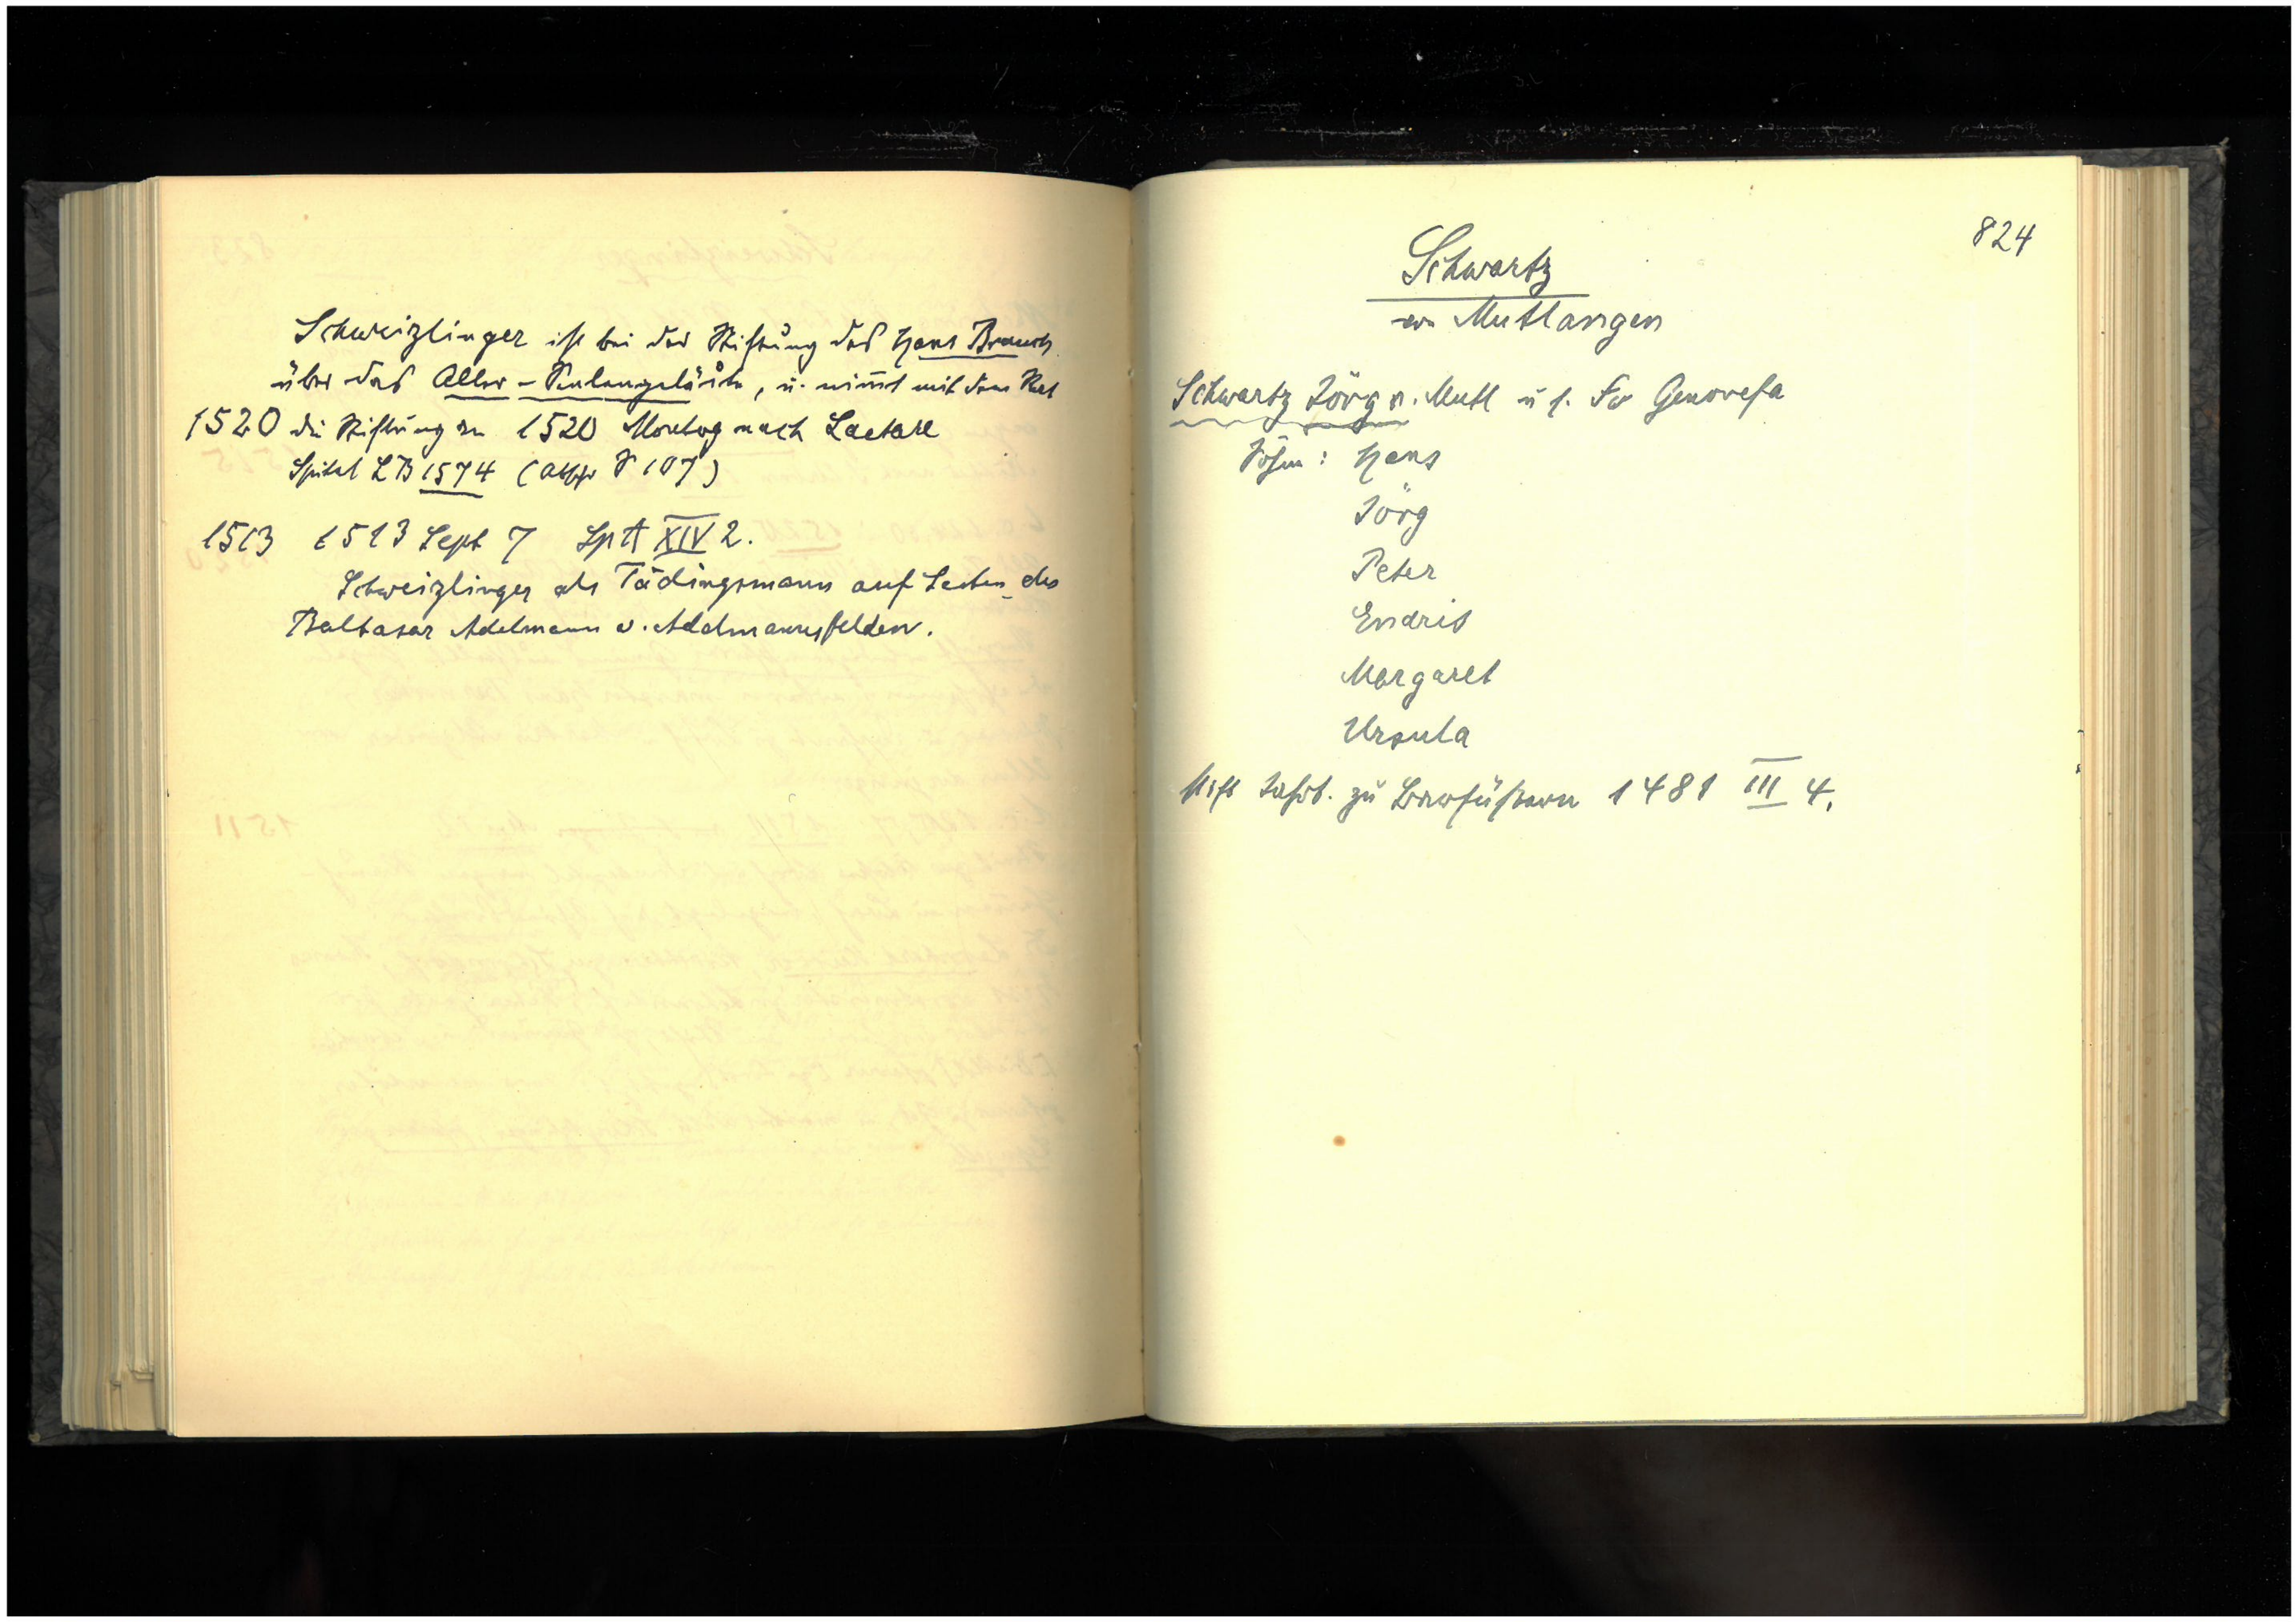 Schweizlinger ist bei der Stiftung des Hans Brauch
über das Aller-Seelengeläute, u. nimt mit dem Rat
1520 die Stiftung an 1520 Montag nach Laetare
Spital LB 1574 (Abschr S 107)
1513 1513 Sept 7 Sp A XIV 2.
Schweizlinger als Tädingsmann auf Seiten des
Baltasar Adelmann v. Adelmannsfelden.
824
Schwartz
von Mutlangen
Schwartz Jörg v. Mutl u s. Fr Genovefa
Söhne: Hans
Jörg
Peter
Endris
Margaret
Ursula
Stift Jahrt. zu Barfüßern 1481 III 4.